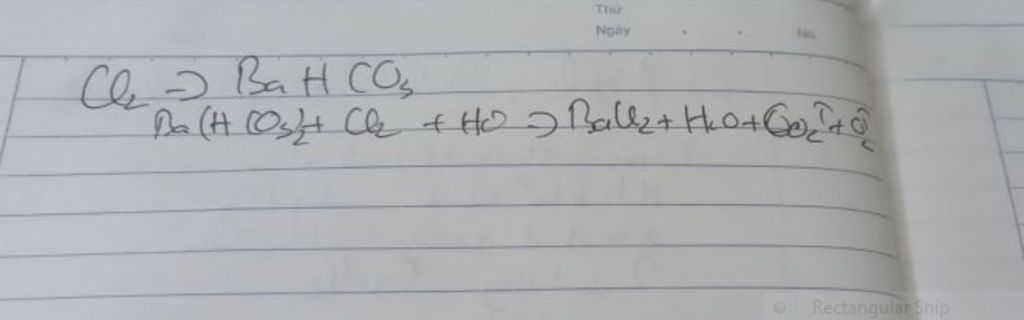 Thứ
Ngày No.
Cl₂ => Ba H CO₃
Ba(H CO₃)₂ + Cl₂ + HO => BaCl₂ + H₂O + CO₂↑ + O₂↑
Rectangular Snip